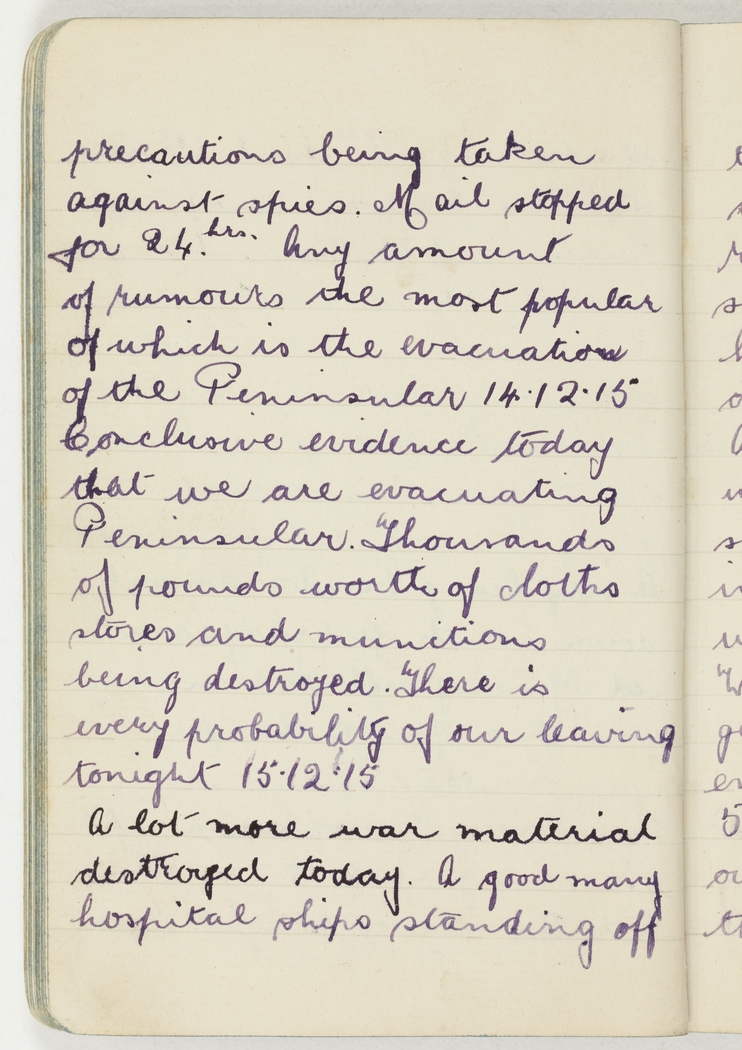 precautions being taken
against spies. Mail stopped
for 24.hrs. Any amount
of rumours the most popular
of which is the evacuation
of the Peninsular 14.12.15
Conclusive evidence today
that we are evacuating
Peninsular. Thousands
of pounds worth of cloths
stores and munitions
being destroyed. There is
every probability of our leaving
tonight 15.12.15
A lot more war material
destroyed today. A good many
hospital ships standing off